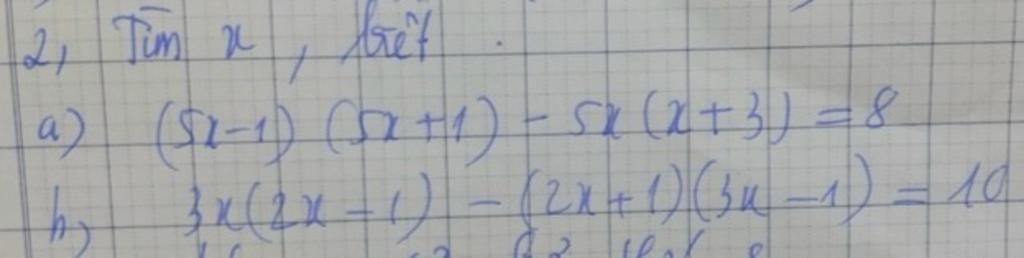 2, Tìm x, biết.
a) (5x-1) (5x+1) - 5x (x+3) = 8
b) 3x(2x-1) - (2x+1)(3x-1) = 10